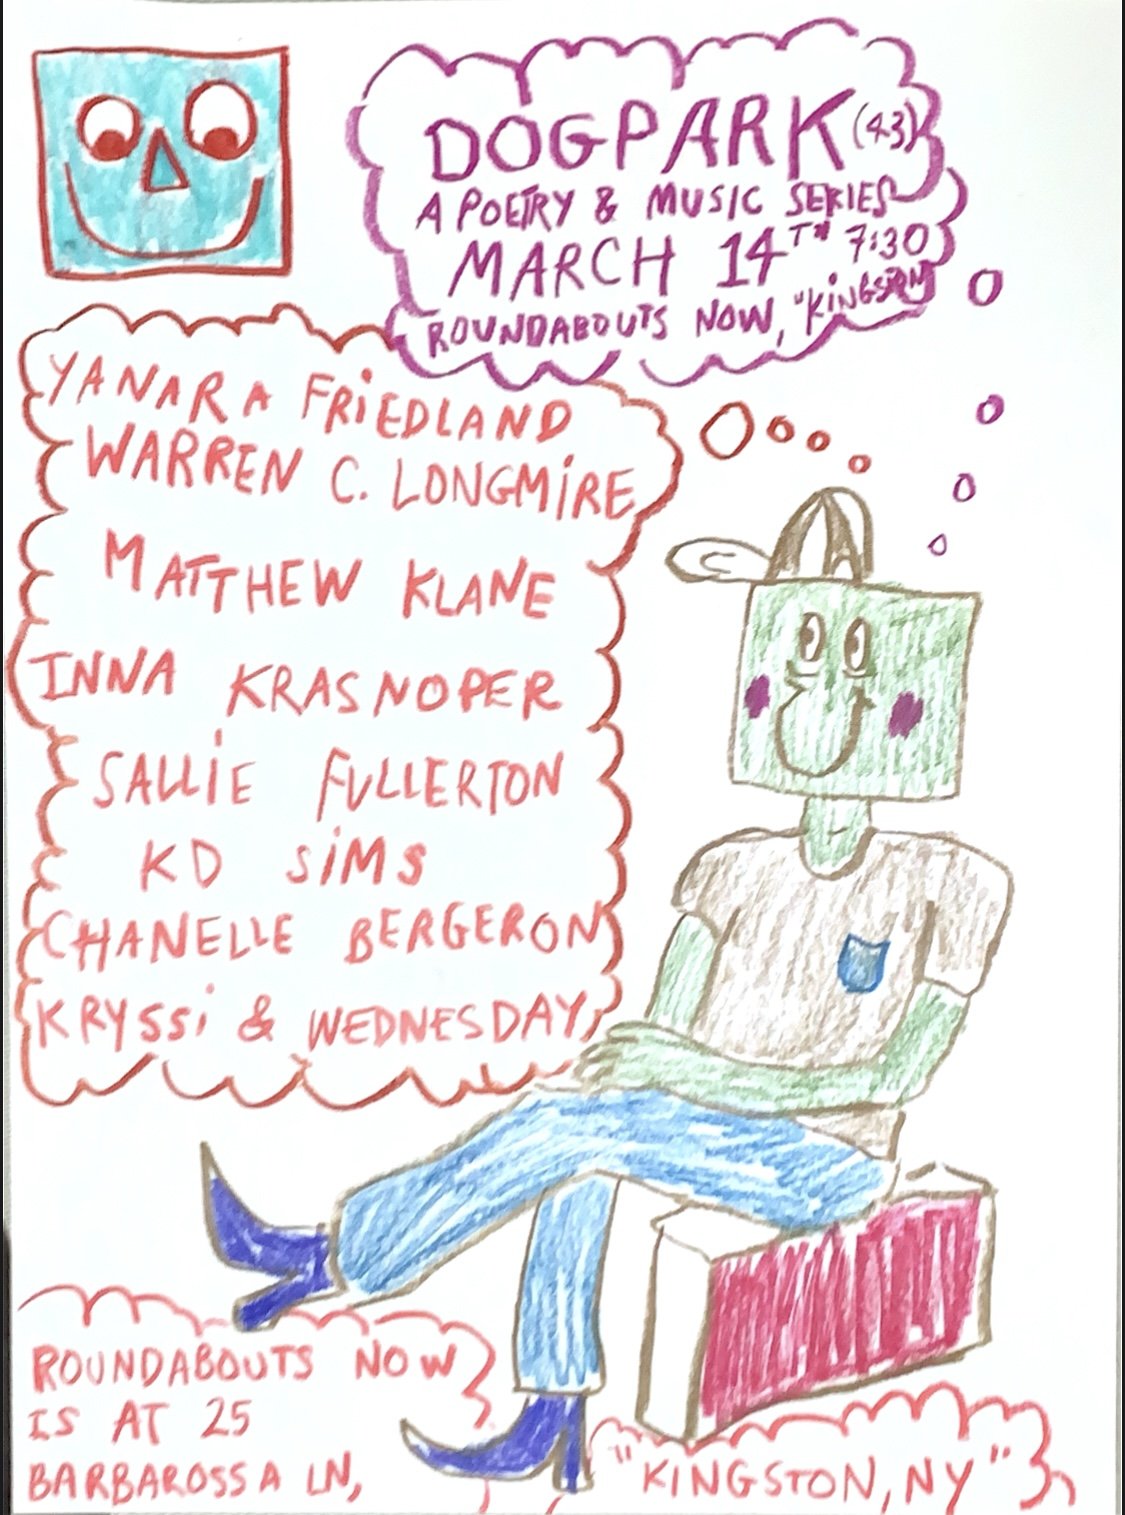 DOGPARK (43)
A POETRY & MUSIC SERIES
MARCH 14TH 7:30
ROUNDABOUTS NOW, "KINGSTON
YANARA FRIEDLAND
WARREN C. LONGMIRE
MATTHEW KLANE
INNA KRASNOPER
SALLIE FULLERTON
KD SIMS
CHANELLE BERGERON
KRYSSI & WEDNESDAY
ROUNDABOUTS NOW
IS AT 25
BARBAROSSA LN,
"KINGSTON, NY"